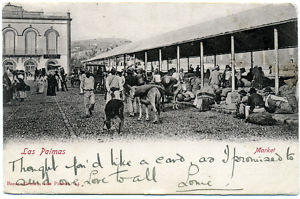 Las Palmas
Market
Thought you'd like a card, as I promised to
Love to all